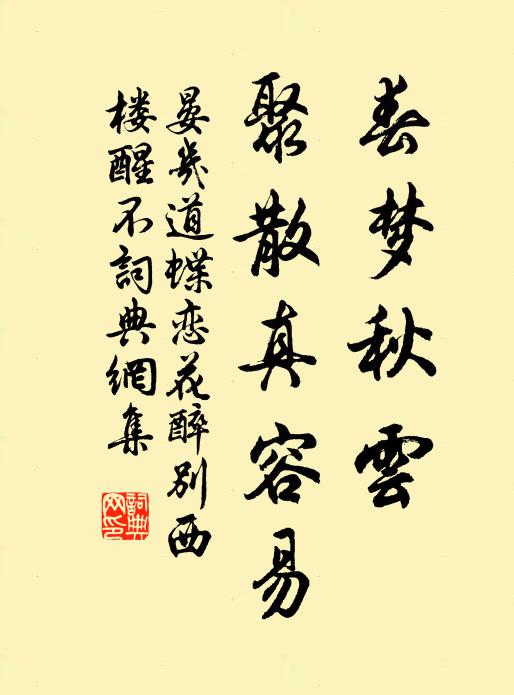 春梦秋雲
聚散真容易
晏幾道蝶恋花醉别西
楼醒不詞典網集
詞典
网印